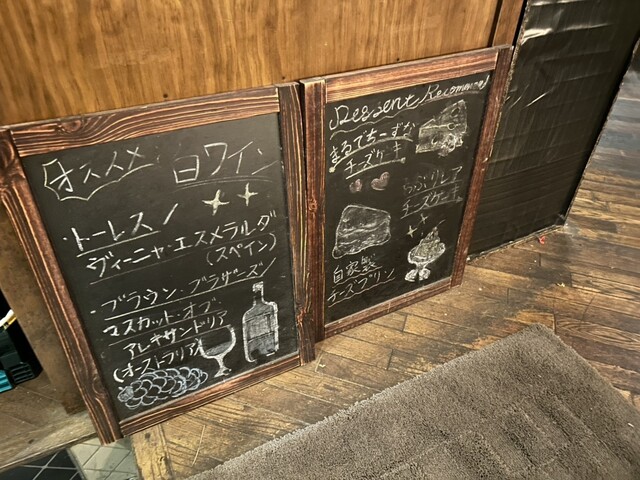 オススメ 白ワイン
・トーレス/
ヴィーニャ・エスメラルダ
(スペイン)
・ブラウン・ブラザーズ/
マスカット・オブ・
アレキサンドリア
(オーストラリア)
Dessert Recommend
まるでちーずな
チーズケーキ
チーズケーキ
自家製
チーズプリン